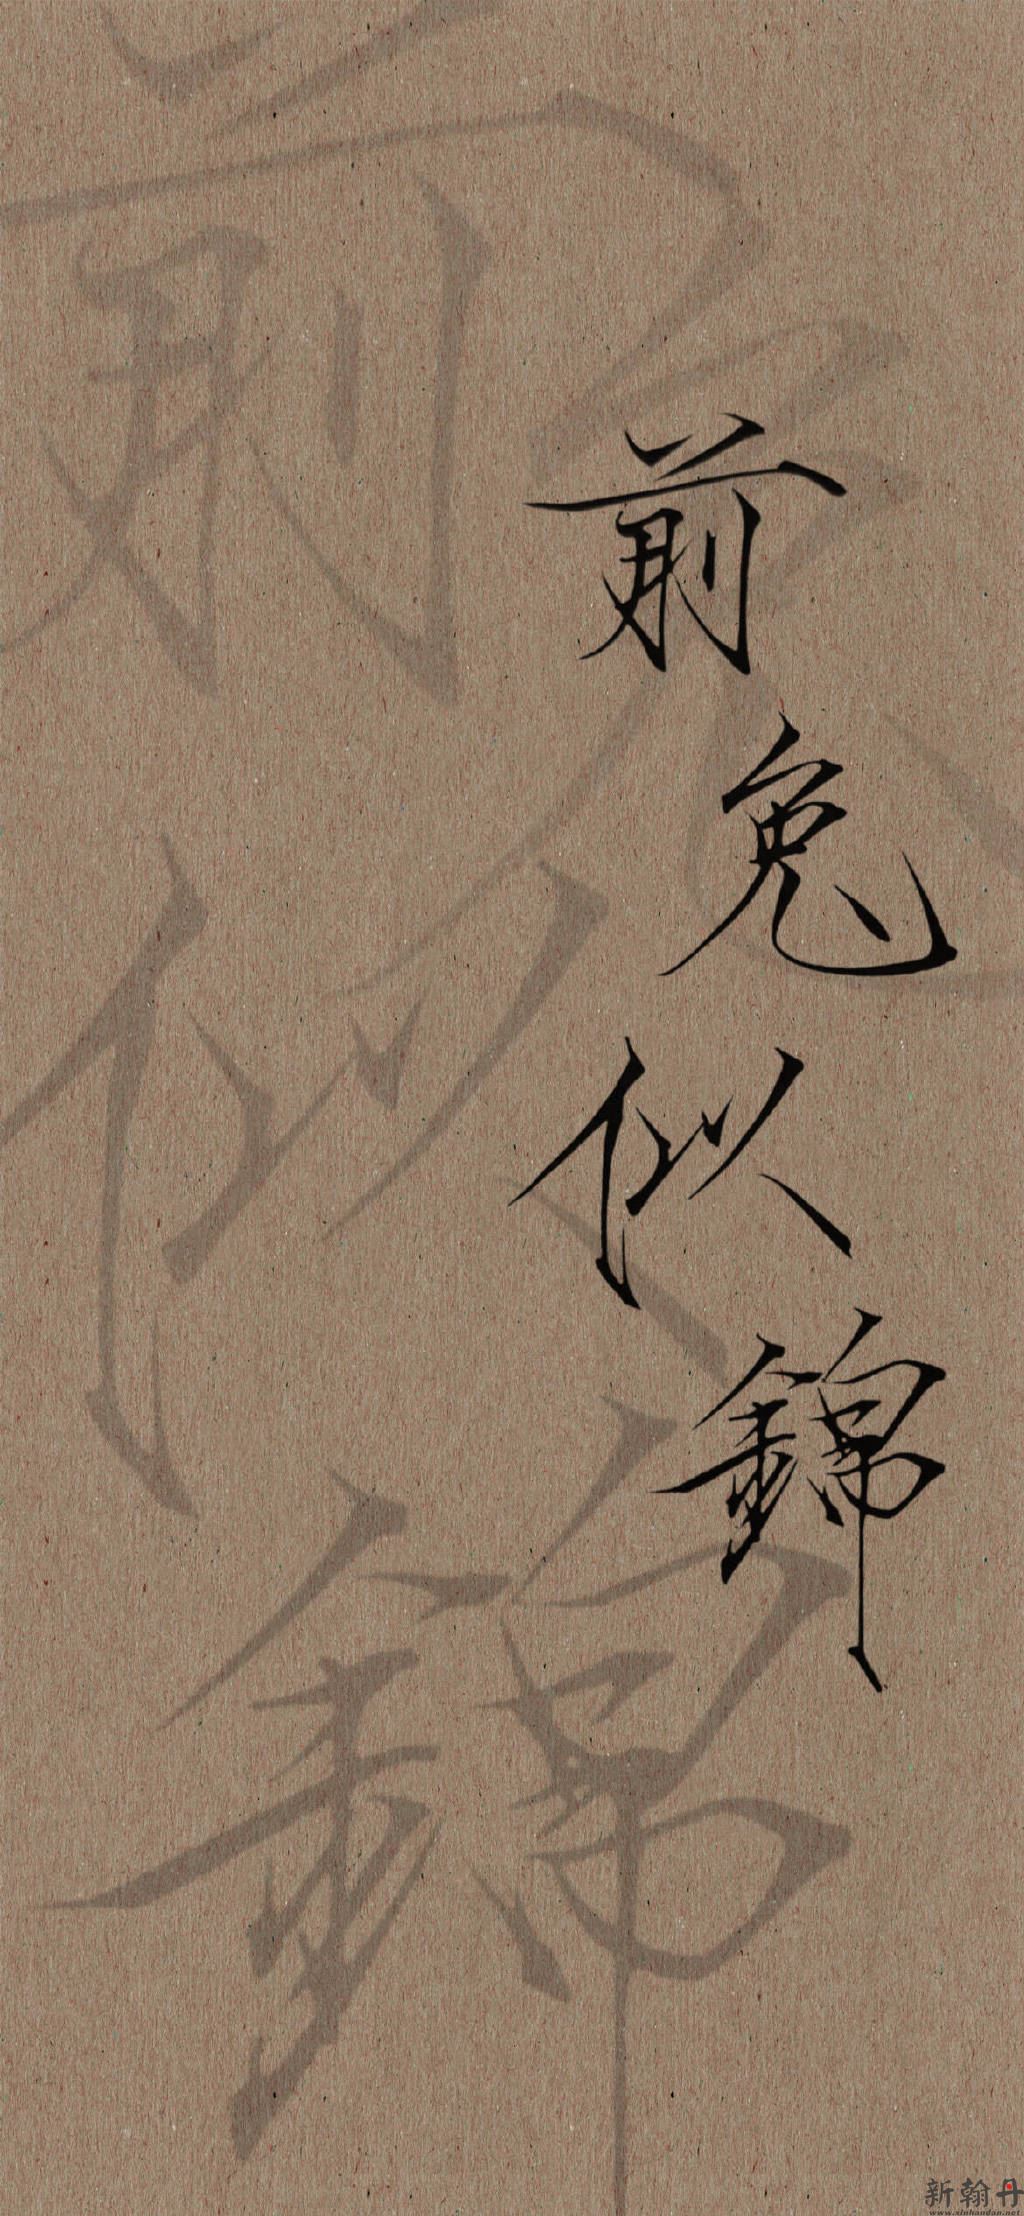 前兔似錦
新翰丹
www.xinhandan.net